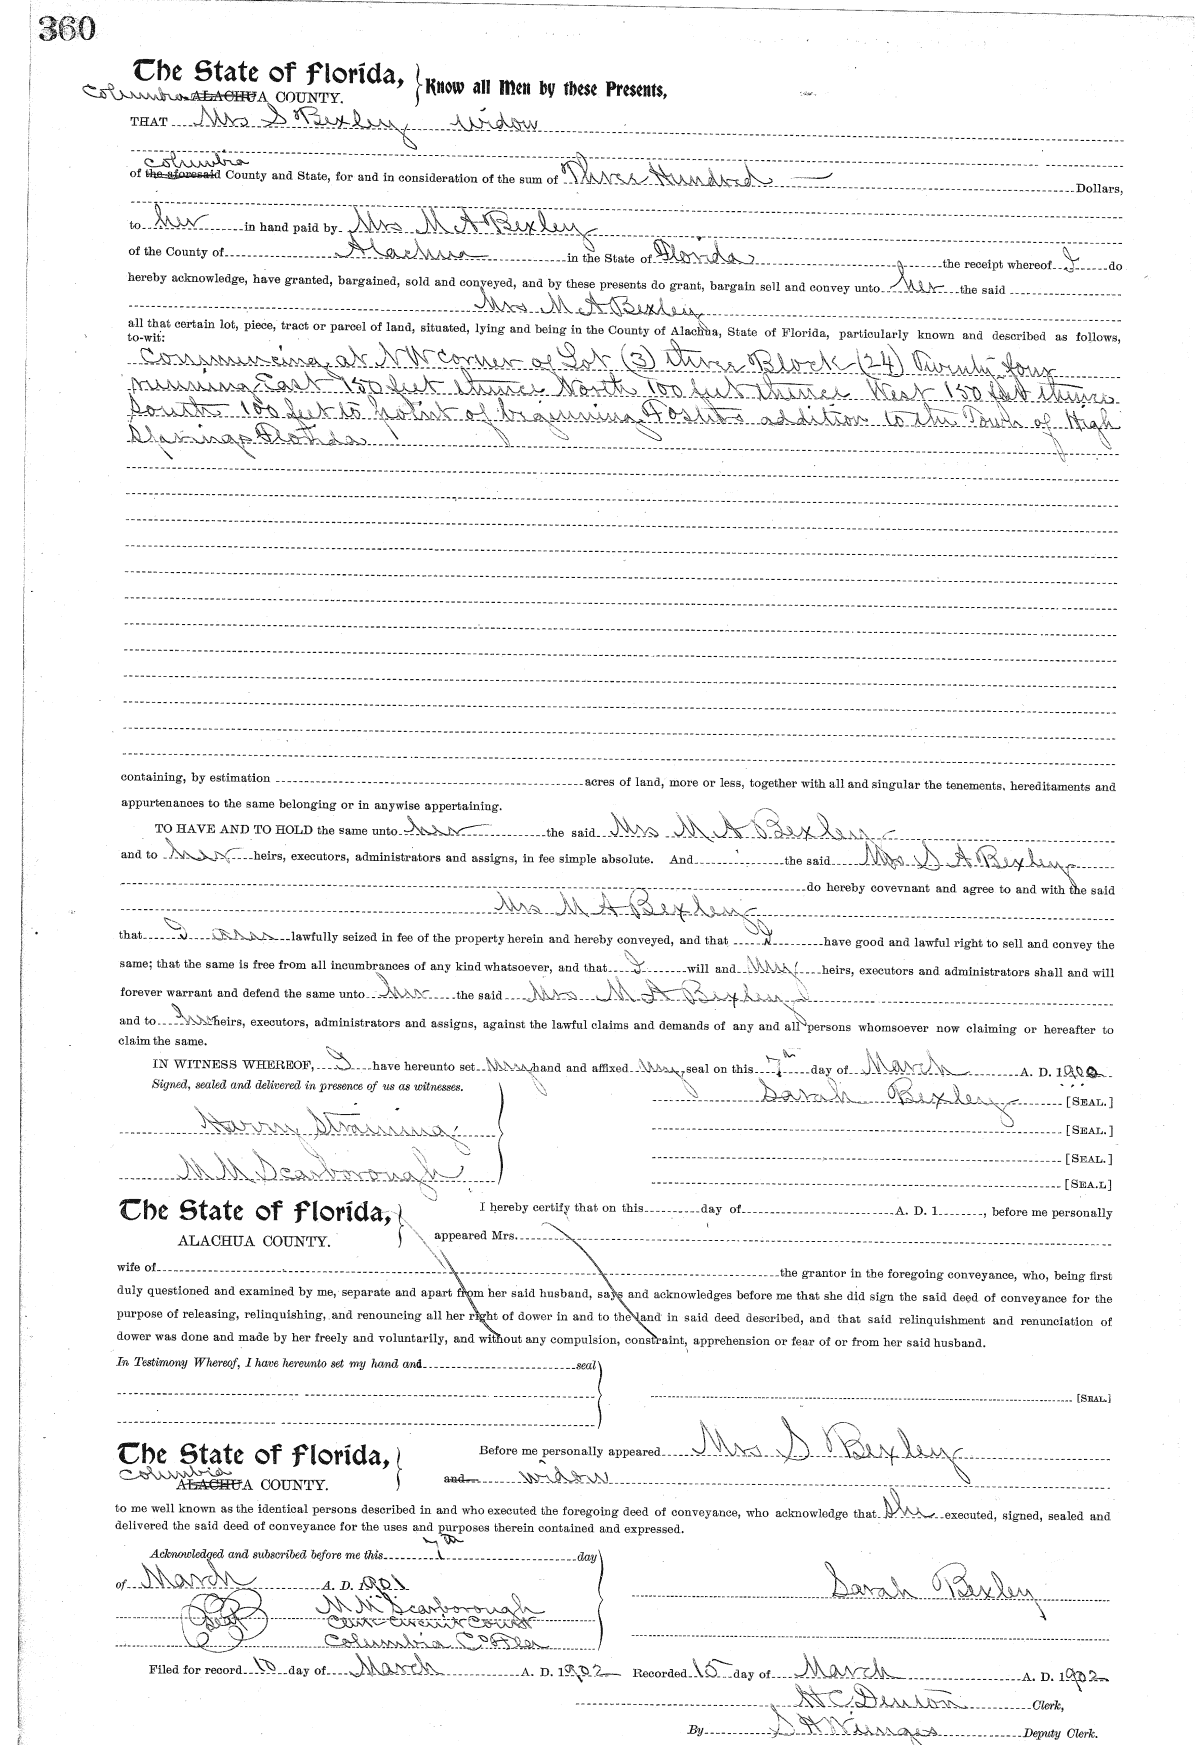 360
The State of Florida, Know all Men by these Presents,
Columbia ALACHUA COUNTY.
THAT Mrs S Bexley widow
Columbia
of the aforesaid County and State, for and in consideration of the sum of Three Hundred Dollars,
to her in hand paid by Mrs M A Bexley
of the County of Alachua in the State of Florida the receipt whereof I do
hereby acknowledge, have granted, bargained, sold and conveyed, and by these presents do grant, bargain sell and convey unto her the said
Mrs M A Bexley
all that certain lot, piece, tract or parcel of land, situated, lying and being in the County of Alachua, State of Florida, particularly known and described as follows,
to-wit:
Commencing at NW corner of Lot (3) three Block (24) Twenty four
running East 150 feet thence North 100 feet thence West 150 feet thence
South 100 feet to point of beginning addition to the Town of High
Springs Florida
containing, by estimation acres of land, more or less, together with all and singular the tenements, hereditaments and
appurtenances to the same belonging or in anywise appertaining.
TO HAVE AND TO HOLD the same unto her the said Mrs M A Bexley
and to her heirs, executors, administrators and assigns, in fee simple absolute. And the said Mrs S A Bexley
do hereby covevnant and agree to and with the said
Mrs M A Bexley
that I lawfully seized in fee of the property herein and hereby conveyed, and that I have good and lawful right to sell and convey the
same; that the same is free from all incumbrances of any kind whatsoever, and that I will and my heirs, executors and administrators shall and will
forever warrant and defend the same unto her the said Mrs M A Bexley
and to her heirs, executors, administrators and assigns, against the lawful claims and demands of any and all persons whomsoever now claiming or hereafter to
claim the same.
IN WITNESS WHEREOF, I have hereunto set my hand and affixed my seal on this 7th day of March A. D. 1902
Signed, sealed and delivered in presence of us as witnesses.
Sarah Bexley [SEAL.]
Harry [SEAL.]
[SEAL.]
M M Scarborough [SEA.L]
The State of Florida,
ALACHUA COUNTY.
I hereby certify that on this day of A. D. 1 , before me personally
appeared Mrs.
wife of the grantor in the foregoing conveyance, who, being first
duly questioned and examined by me, separate and apart from her said husband, says and acknowledges before me that she did sign the said deed of conveyance for the
purpose of releasing, relinquishing, and renouncing all her right of dower in and to the land in said deed described, and that said relinquishment and renunciation of
dower was done and made by her freely and voluntarily, and without any compulsion, constraint, apprehension or fear of or from her said husband.
In Testimony Whereof, I have hereunto set my hand and seal
[SEAL.]
The State of Florida,
Columbia
ALACHUA COUNTY.
Before me personally appeared Mrs S Bexley
and widow
to me well known as the identical persons described in and who executed the foregoing deed of conveyance, who acknowledge that she executed, signed, sealed and
delivered the said deed of conveyance for the uses and purposes therein contained and expressed.
Acknowledged and subscribed before me this 7th day
of March A. D. 1901
Sarah Bexley
Seal M M Scarborough
Clerk Circuit Court
Columbia Co Fla
Filed for record 10 day of March A. D. 1902 Recorded 15 day of March A. D. 1902
H C Denton Clerk,
By S H Wienges Deputy Clerk.